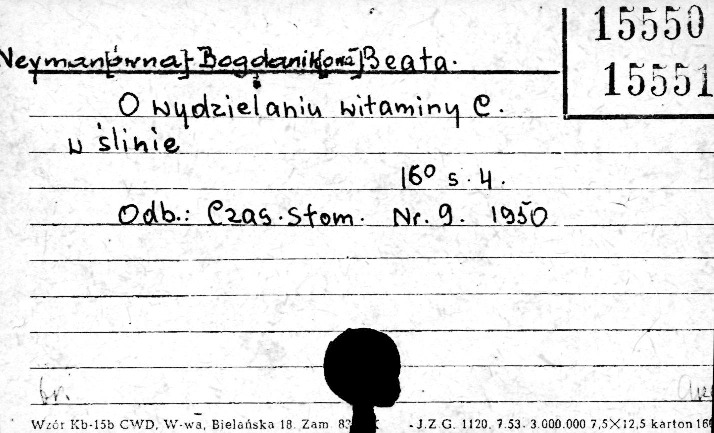 15550
15551
Neyman[ówna]-Bogdanik[owa] Beata.
O wydzielaniu witaminy C.
w ślinie
16° s. 4.
Odb.: Czas. Stom. Nr. 9. 1950
Wzór Kb-15b CWD, W-wa, Bielańska 18. Zam. 83 - J.Z.G. 1120. 7.53. 3.000.000 7,5×12,5 karton